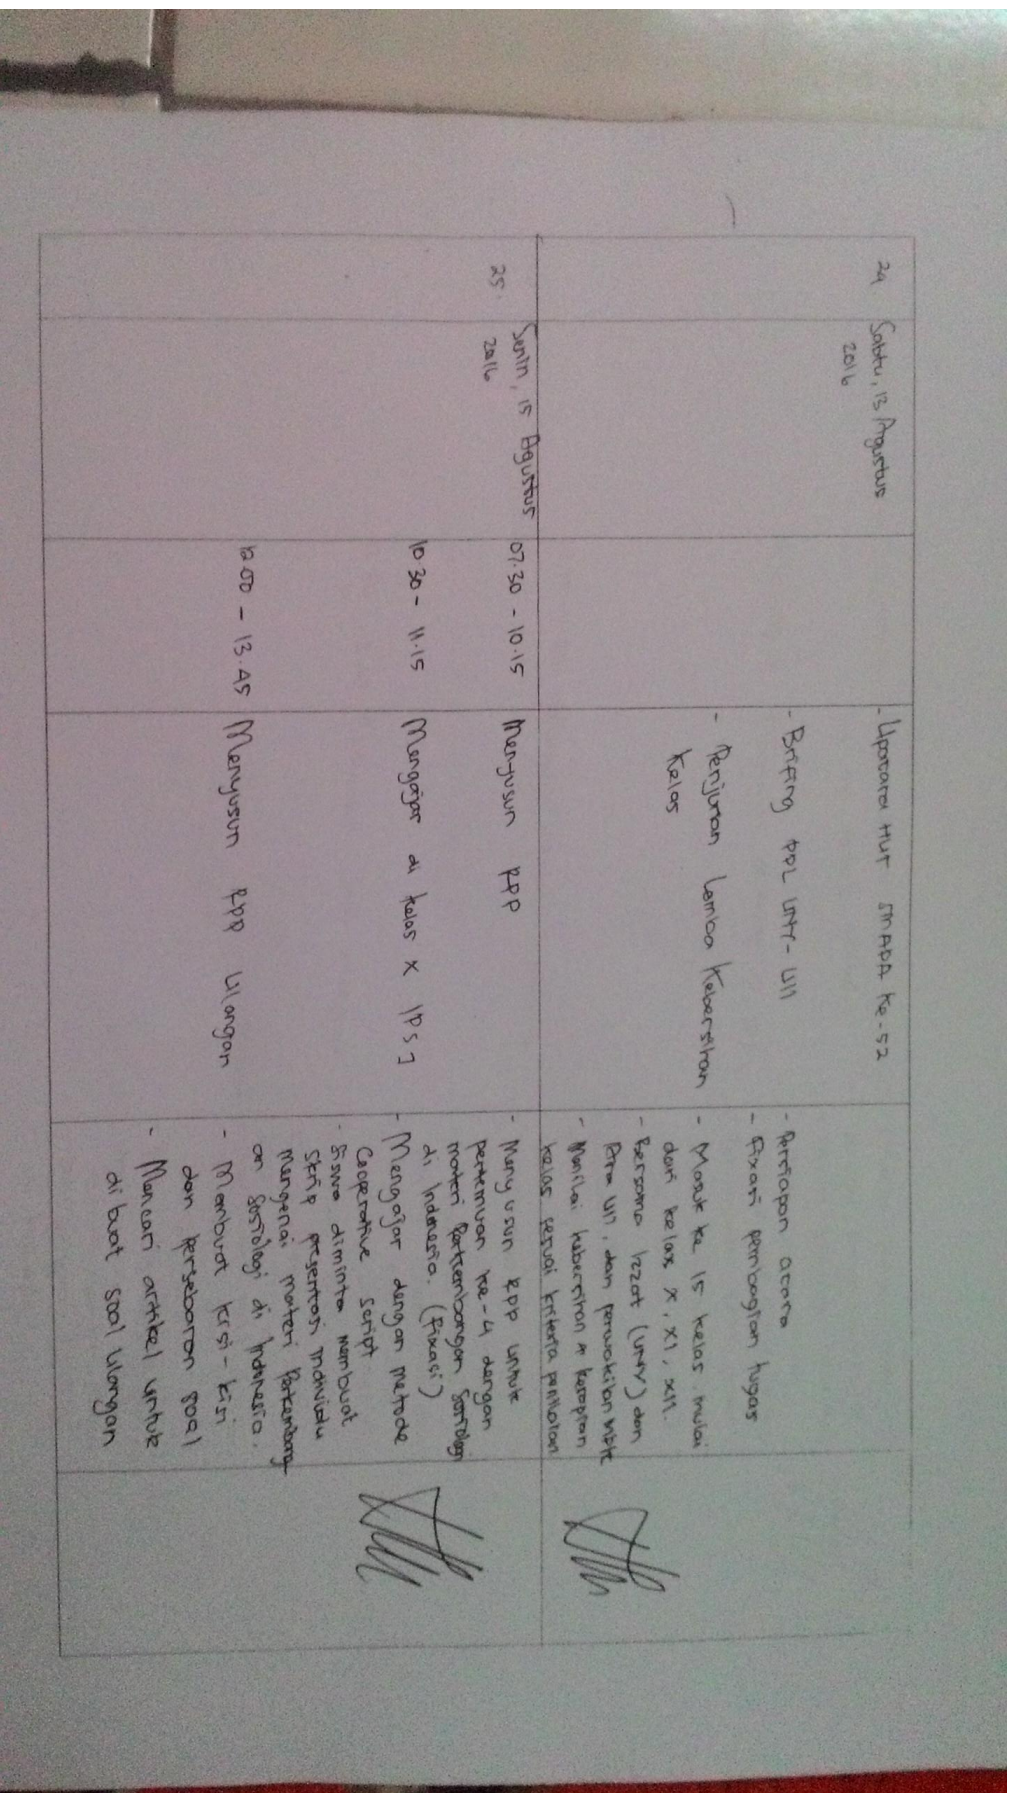 24
Sabtu, 13 Agustus
2016
- Upacara HUT SMADA Ke-52
- Brifing PPL UNY- UII
- Persiapan acara
- Fixasi pembagian tugas
- Penjurian Lomba Kebersihan
Kelas
- Masuk ke 15 kelas mulai
dari kelas X, XI, XII.
- Bersama Izzat (UNY) dan
UII, dan perwakilan
- Menilai kebersihan & kerapian
kelas sesuai kriteria penilaian
25.
Senin, 15 Agustus
2016
07.30 - 10.15
Menyusun RPP
- Menyusun RPP untuk
pertemuan ke-4 dengan
materi Perkembangan Sosiologi
di Indonesia. (fixasi)
10 30 - 11.15
Mengajar di kelas X IPS 1
- Mengajar dengan metode
Cooperative script
- Siswa diminta membuat
Skrip presentasi individu
mengenai materi Perkembang-
an Sosiologi di Indonesia.
12.00 - 13.45
Menyusun RPP Ulangan
- Membuat kisi-kisi
dan persebaran soal
- Mencari artikel untuk
dibuat soal ulangan